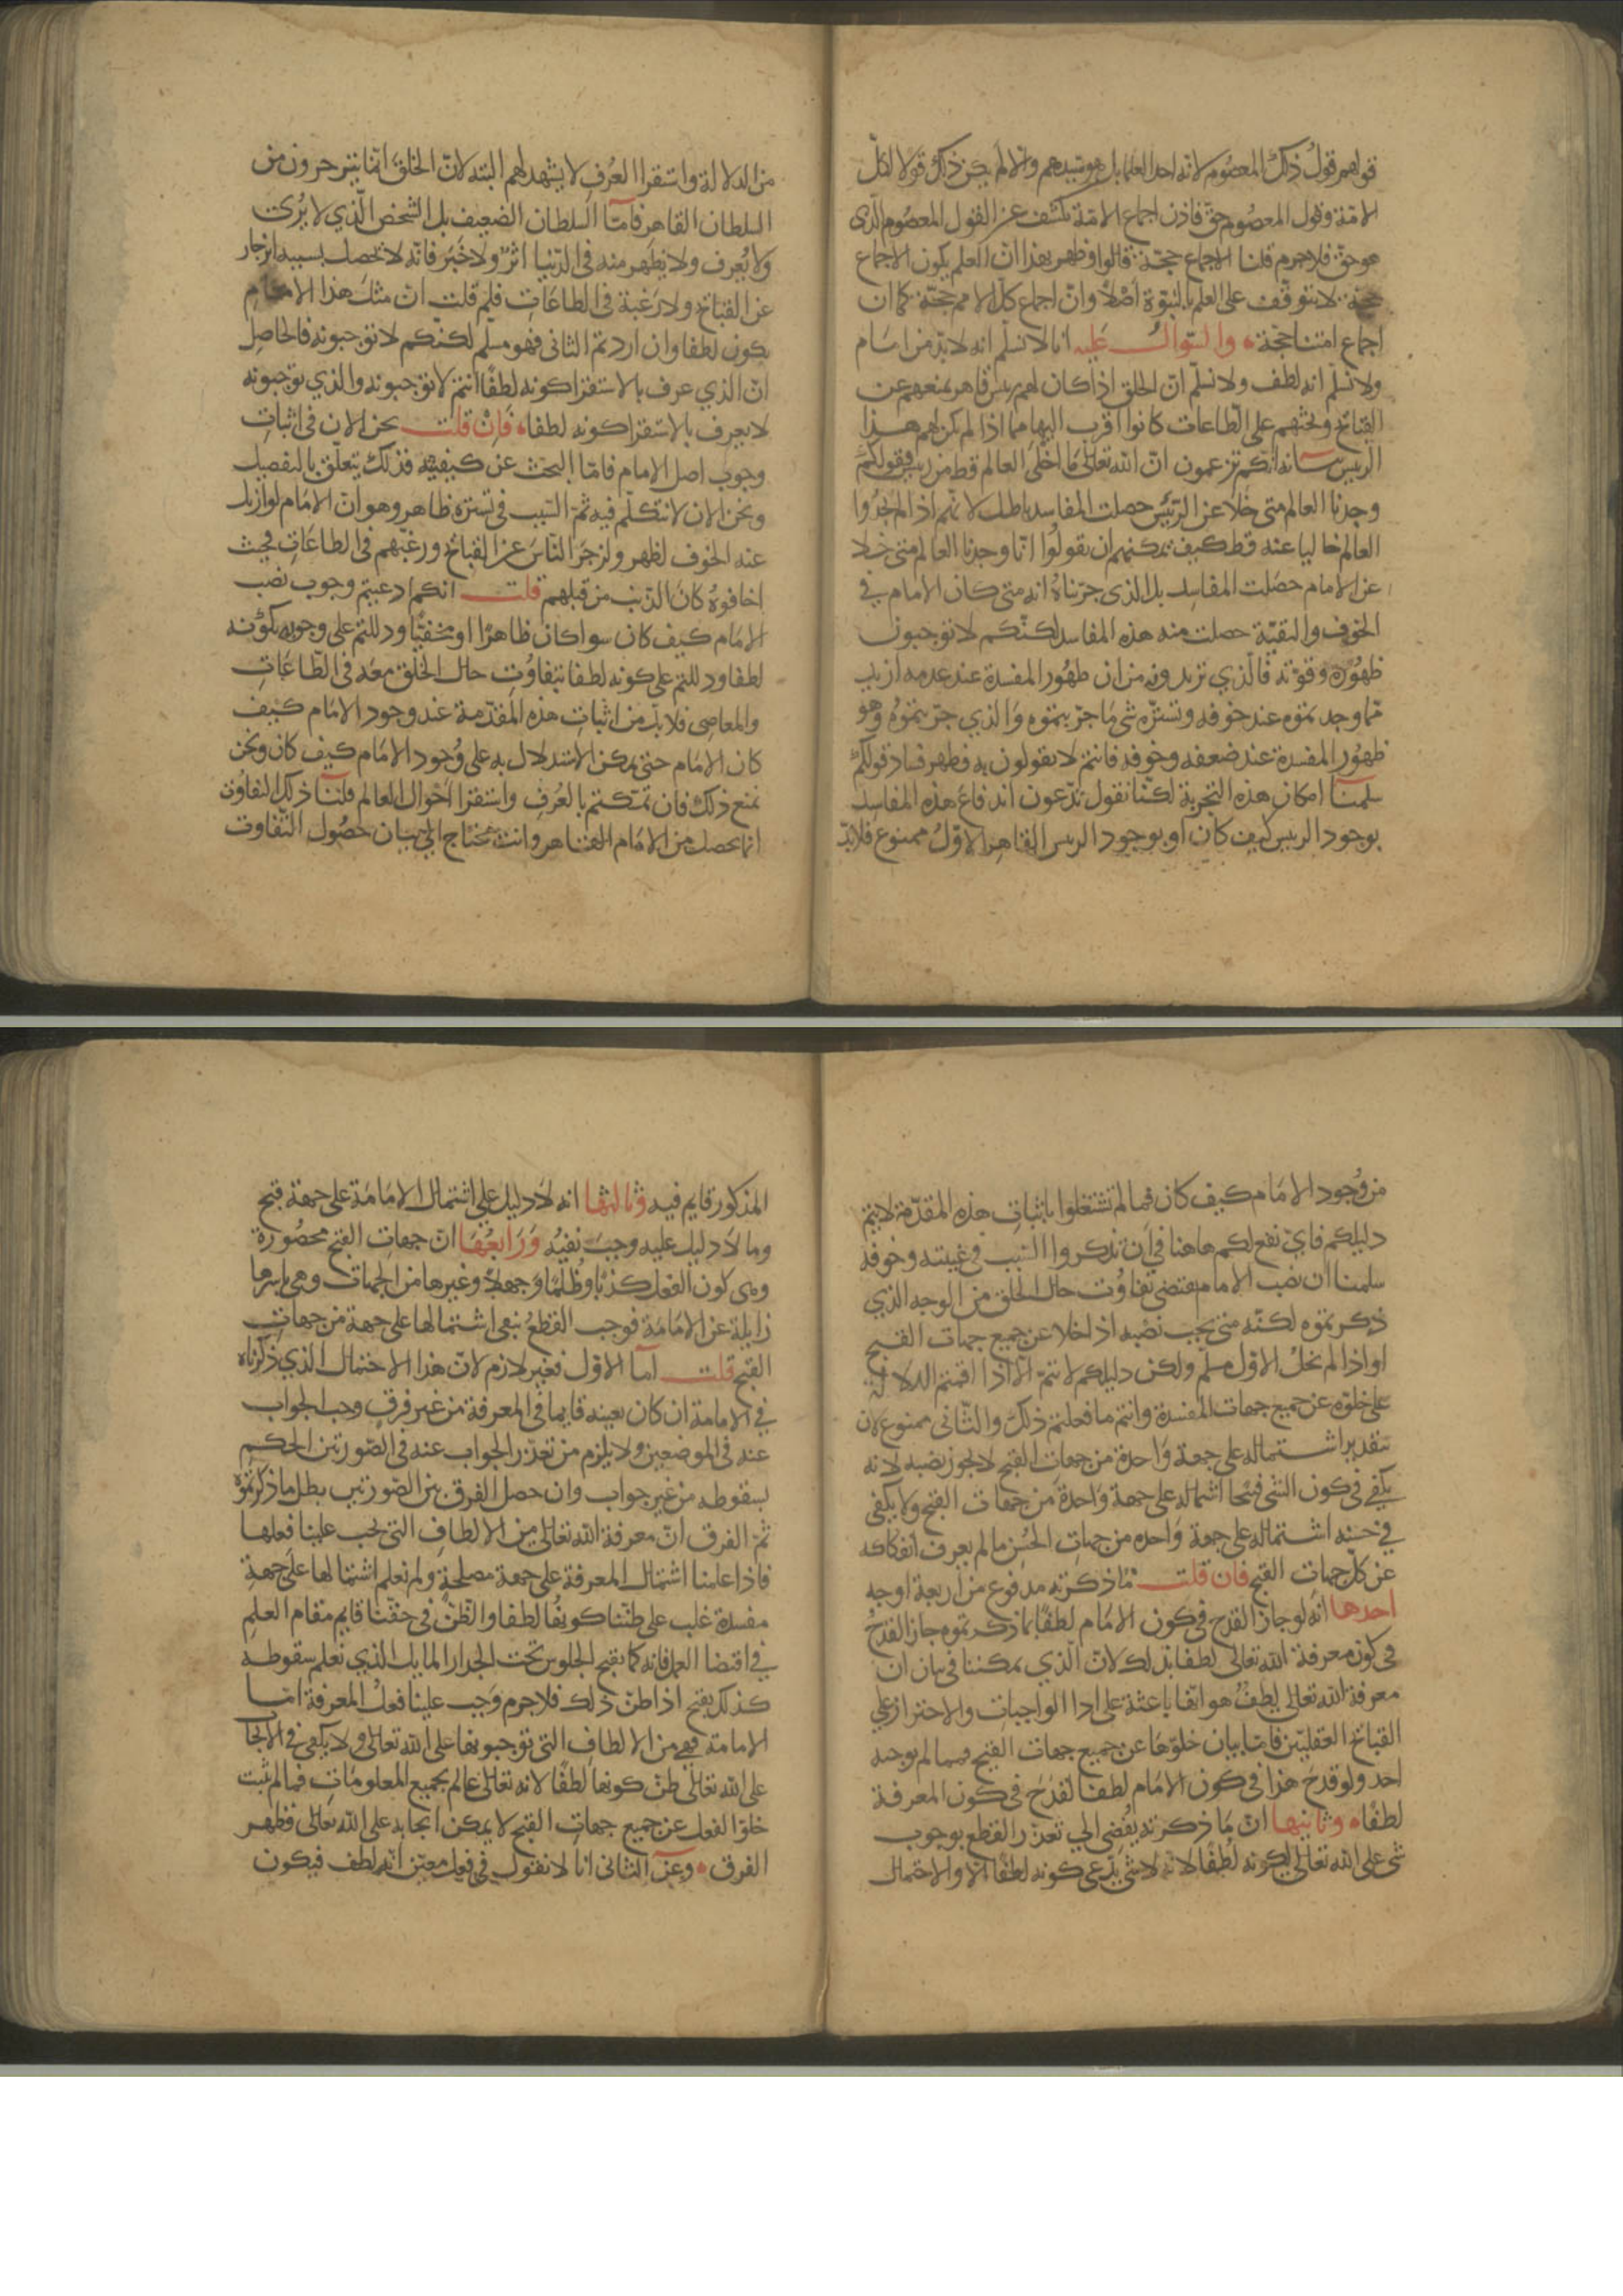 قولهم قولُ ذلك المعصوم لانه احد العلما بل هو سيدهم والا لم يكن ذلك قولا لكلّ
الامّة وقول المعصوم حقّ فاذن اجماع الامّة يكشف عن القول المعصوم الّذى
هو حقّ فلاجرم قلنا الاجماع حجّة قالوا وظهر بهذا انّ العلم بكون الاجماع
حجة لا يتوقف على العلم بالنبوّة اصلاً وانّ اجماع كلّ الامم حجّة كما ان
اجماع امتنا حجّة والسّوال عليه انا لا نسلّم انه لا بدّ من امام
ولا نسلّم انه لطف ولا نسلّم انّ الخلق اذا كان لهم رييس قاهر يمنعهم عن
القبائح ويحثهم على الطّاعات كانوا اقرب اليها مما اذا لم يكن لهم هذا
الرييس بيانه انكم تزعمون انّ الله تعالى ما اخلى العالم قط من رييس فقولكم
وجدنا العالم متى خلا عن الرّئيس حصلت المفاسد باطل لانهم اذا لم يجدوا
العالم خاليا عنه قط كيف يمكنهم ان يقولوا انّا وجدنا العالم متى خلا
عن الامام حصلت المفاسد بل الذى جرّبناه انه متى كان الامام في
الخوف والتقيّة حصلت منه هذه المفاسد لكنّكم لا توجبون
ظهوره وقوّته فالّذي تريدونه من ان ظهور المفسدة عند عدمه ازيد
ممّا وجدتموه عند خوفه وتستّره شى ما جرّبتموه والذي جرّبتموه وهو
ظهور المفسدة عند ضعفه وخوفه فانتم لا تقولون به فظهر فساد قولكم
سلمنا امكان هذه التجربة لكنّا نقول تدّعون اندفاع هذه المفاسد
بوجود الرييس كيف كان او بوجود الرييس القاهر الاوّل ممنوع فلا بدّ
من الدلالة واستقرا العرف لا يشهد لهم البته لانّ الخلق انما ينزجرون من
السلطان القاهر فامّا السلطان الضعيف بل الشخص الّذي لا يُرى
ولا يُعرف ولا يظهر منه فى الدّنيا اثرٌ ولا خبر فانّه لا يحصل بسببه انزجار
عن القبائح ولا رغبة فى الطاعات فلم قلت انّ مثل هذا الامام
يكون لطفا وان اردتم الثانى فهو مسلّم لكنّكم لا توجبونه فالحاصل
انّ الذي عرف بالاستقرا كونه لطفًا انتم لا توجبونه والذي توجبونه
لا يعرف بالاستقرا كونه لطفا فان قلت نحن الان فى اثبات
وجوب اصل الامام فامّا البحث عن كيفيته فذلك يتعلّق بالتفصيل
ونحن الان لا نتكلّم فيه ثمّ السّبب فى تستره ظاهر وهو انّ الامام لو ازيل
عنه الخوف لظهر ولزجر النّاس عن القبائح ورغّبهم فى الطاعات فحيث
اخافوه كان الذنب من قبلهم قلت انكم ادعيتم وجوب نصب
الامام كيف كان سوا كان ظاهرًا او مخفيًّا ودللتم على وجوبه بكونه
لطفا ودللتم على كونه لطفا بتفاوت حال الخلق معه فى الطّاعات
والمعاصى فلا بدّ من اثبات هذه المقدّمة عند وجود الامام كيف
كان الامام حتى يمكن الاستدلال به على وجود الامام كيف كان ونحن
نمنع ذلك فان تمسّكتم بالعرف واستقرا احوال العالم قلنا ذلك التفاوت
انما يحصل من الامام القاهر وانت محتاج الى بيان حصول التّفاوت
من وجود الامام كيف كان فما لم تشتغلوا باثبات هذه المقدّمة لا يتم
دليلكم فايّ نفع لكم هاهنا في ان تذكروا السّبب في غيبته وخوفه
سلمنا ان نصب الامام يقتضى تفاوت حال الخلق من الوجه الذي
ذكرتموه لكنّه متى يجب نصبه اذا خلا عن جميع جهات القبح
او اذا لم يخلُ الاوّل مسلم ولكن دليلكم لا يتمّ الّا اذا اقمتم الدلالة
على خلوّه عن جميع جهات المفسدة وانتم ما فعلتم ذلك والثّانى ممنوع لان
بتقدير اشتماله على جهة واحدة من جهات القبح لا يجوز نصبه لانه
يكفى فى كون الشى قبيحا اشتماله على جهة واحدة من جهات القبح ولا يكفى
في حسنه اشتماله على جهة واحده من جهات الحُسن ما لم يعرف انفكاكه
عن كلّ جهات القبح فان قلت ما ذكرته مدفوع من اربعة اوجه
احدها انّه لو جاز القدح في كون الامام لطفًا بما ذكرتموه جاز القدحُ
فى كون معرفة الله تعالى لطفا بذلك لانّ الّذي يمكننا فى بيان ان
معرفة الله تعالى لطفٌ هو انّها باعثة على ادا الواجبات والاحتراز على
القبائح العقليّه فامّا بيان خلوّها عن جميع جهات القبح فمما لم يوجبه
احد ولو قدح هذا فى كون الامام لطفا لقدح فى كون المعرفة
لطفًا وثانيها انّ ما ذكرته يفضى الي تعذّر القطع بوجوب
شى على الله تعالى لكونه لطفًا لانه لا شى يدّعى كونه لطفًا الا والاحتمال
المذكور قايم فيه وثالثها انه لا دليل على اشتمال الامامة على جهة قبح
وما لا دليل عليه وجب نفيه ورابعها انّ جهات القبح محصورة
وهى كون الفعل كذبًا وظلمًا وجهلًا وغيرها من الجهات وهى باسرها
زايلة عن الامامة فوجب القطع بنفى اشتمالها على جهة من جهات
القبح قلت امّا الاوّل فغير لازم لانّ هذا الاحتمال الذي ذكرناه
في الامامة ان كان بعينه قايما فى المعرفة من غير فرق وجب الجواب
عنه فى الموضعين ولا يلزم من تعذر الجواب عنه فى الصّورتين الحكم
بسقوطه من غير جواب وان حصل الفرق بين الصّورتين بطل ما ذكرتموه
ثمّ الفرق انّ معرفة الله تعالى من الالطاف التى يجب علينا فعلها
فاذا علمنا اشتمال المعرفة على جهة مصلحة ولم نعلم اشتمالها على جهة
مفسدة غلب على ظنّنا كونها لطفا والظّنّ فى حقّنا قايم مقام العلم
في اقتضا العمل فانه كما يقبح الجلوس تحت الجدار المايل الذي نعلم سقوطه
كذلك يقبح اذا ظنّ ذلك فلا جرم وجب علينا فعل المعرفة امّا
الامامة فهى من الالطاف التى توجبونها على الله تعالى ولا يكفى فى الايجاب
على الله تعالى ظنّ كونها لطفًا لانه تعالى عالم بجميع المعلومات فما لم يثبت
خلوّ الفعل عن جميع جهات القبح لا يمكن ايجابه على الله تعالى فظهر
الفرق وعن الثّانى انا لا نقول في فعل معيّن انّه لطف فيكون